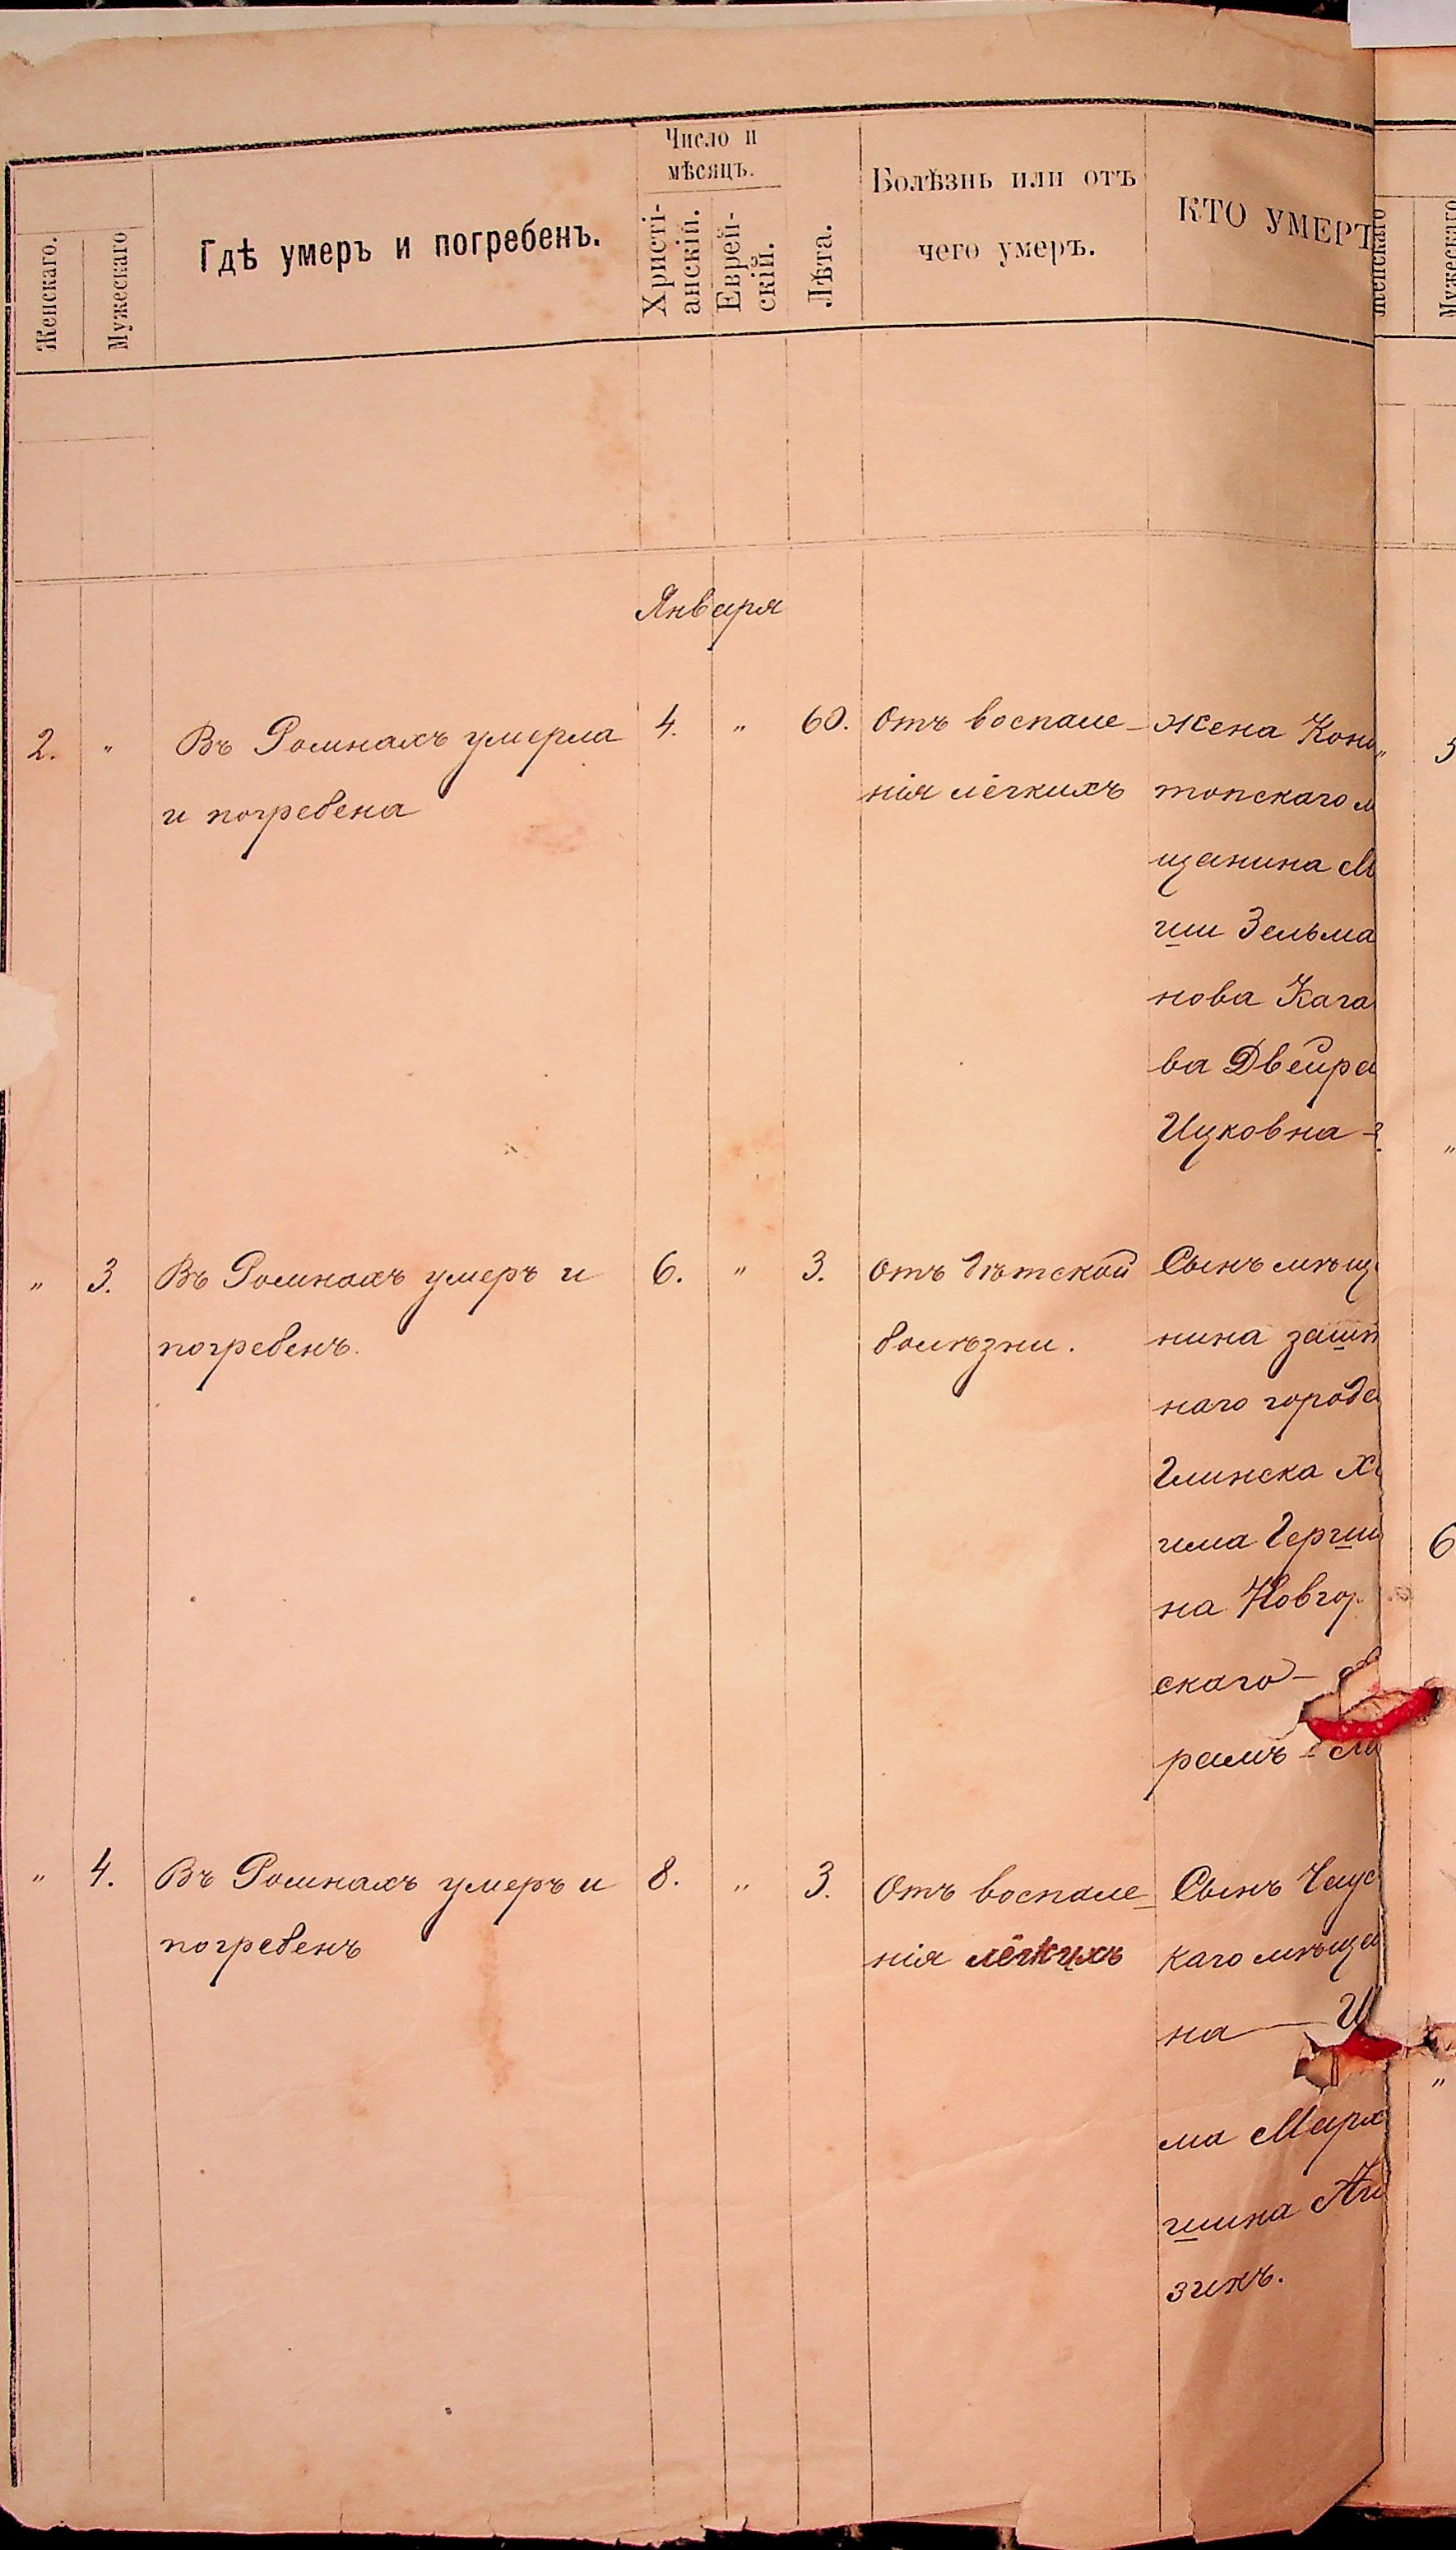 Женскаго.
Мужескаго
Гдѣ умеръ и погребенъ.
Число и
мѣсяцъ.
Христі-
анскій.
Еврей-
скій.
Лѣта.
Болѣзнь или отъ
чего умеръ.
КТО УМЕРЪ
Женскаго
Мужескаго
Января
2.
"
Въ Ромнахъ умерла
и погребена
4.
"
60.
Отъ воспале-
нія лёгкихъ
Жена Коно
топскаго м
щанина М
ши Зельма
нова Кага
ва Двейра
Ицковна
"
3.
Въ Ромнахъ умеръ и
погребенъ.
6.
"
3.
Отъ дѣтской
болѣзни.
Сынъ мѣщ
нина зашт
наго города
Глинска Х
има Герши
на Новгор
скаго -
рамъ -
"
4.
Въ Ромнахъ умеръ и
погребенъ
8.
"
3.
Отъ воспале
нія лёгкихъ
Сынъ Чаус
каго мѣща
на — И
ма Марк
шина
зинъ.
"
5
"
6
"